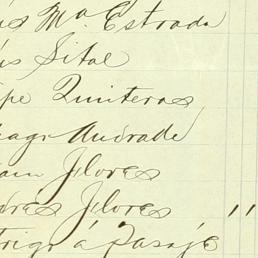 is Ma. Estrada
is Sital
pe Quiteros
iago Andrade
uan Flores
drés Flores 11
Trigo á Pasaje